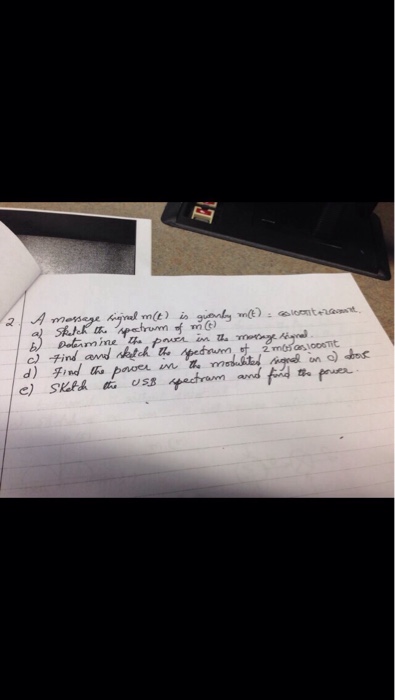 2. A message signal m(t) is given by m(t) = cos100πt + 2cos
a) Sketch the spectrum of m(t)
b) Determine the power in the message signal.
c) Find and sketch the spectrum of 2m(t)cos1000πt
d) Find the power in the modulated signal in c) above
e) Sketch the USB spectrum and find the power.